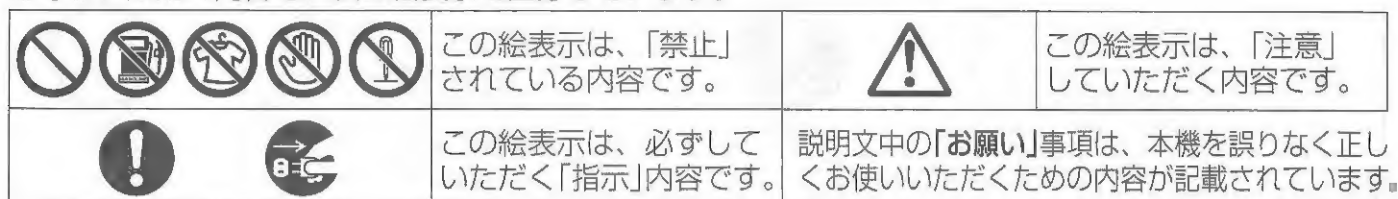 この絵表示は、「禁止」
されている内容です。
この絵表示は、「注意」
していただく内容です。
この絵表示は、必ずして
いただく「指示」内容です。
説明文中の「お願い」事項は、本機を誤りなく正し
くお使いいただくための内容が記載されています。